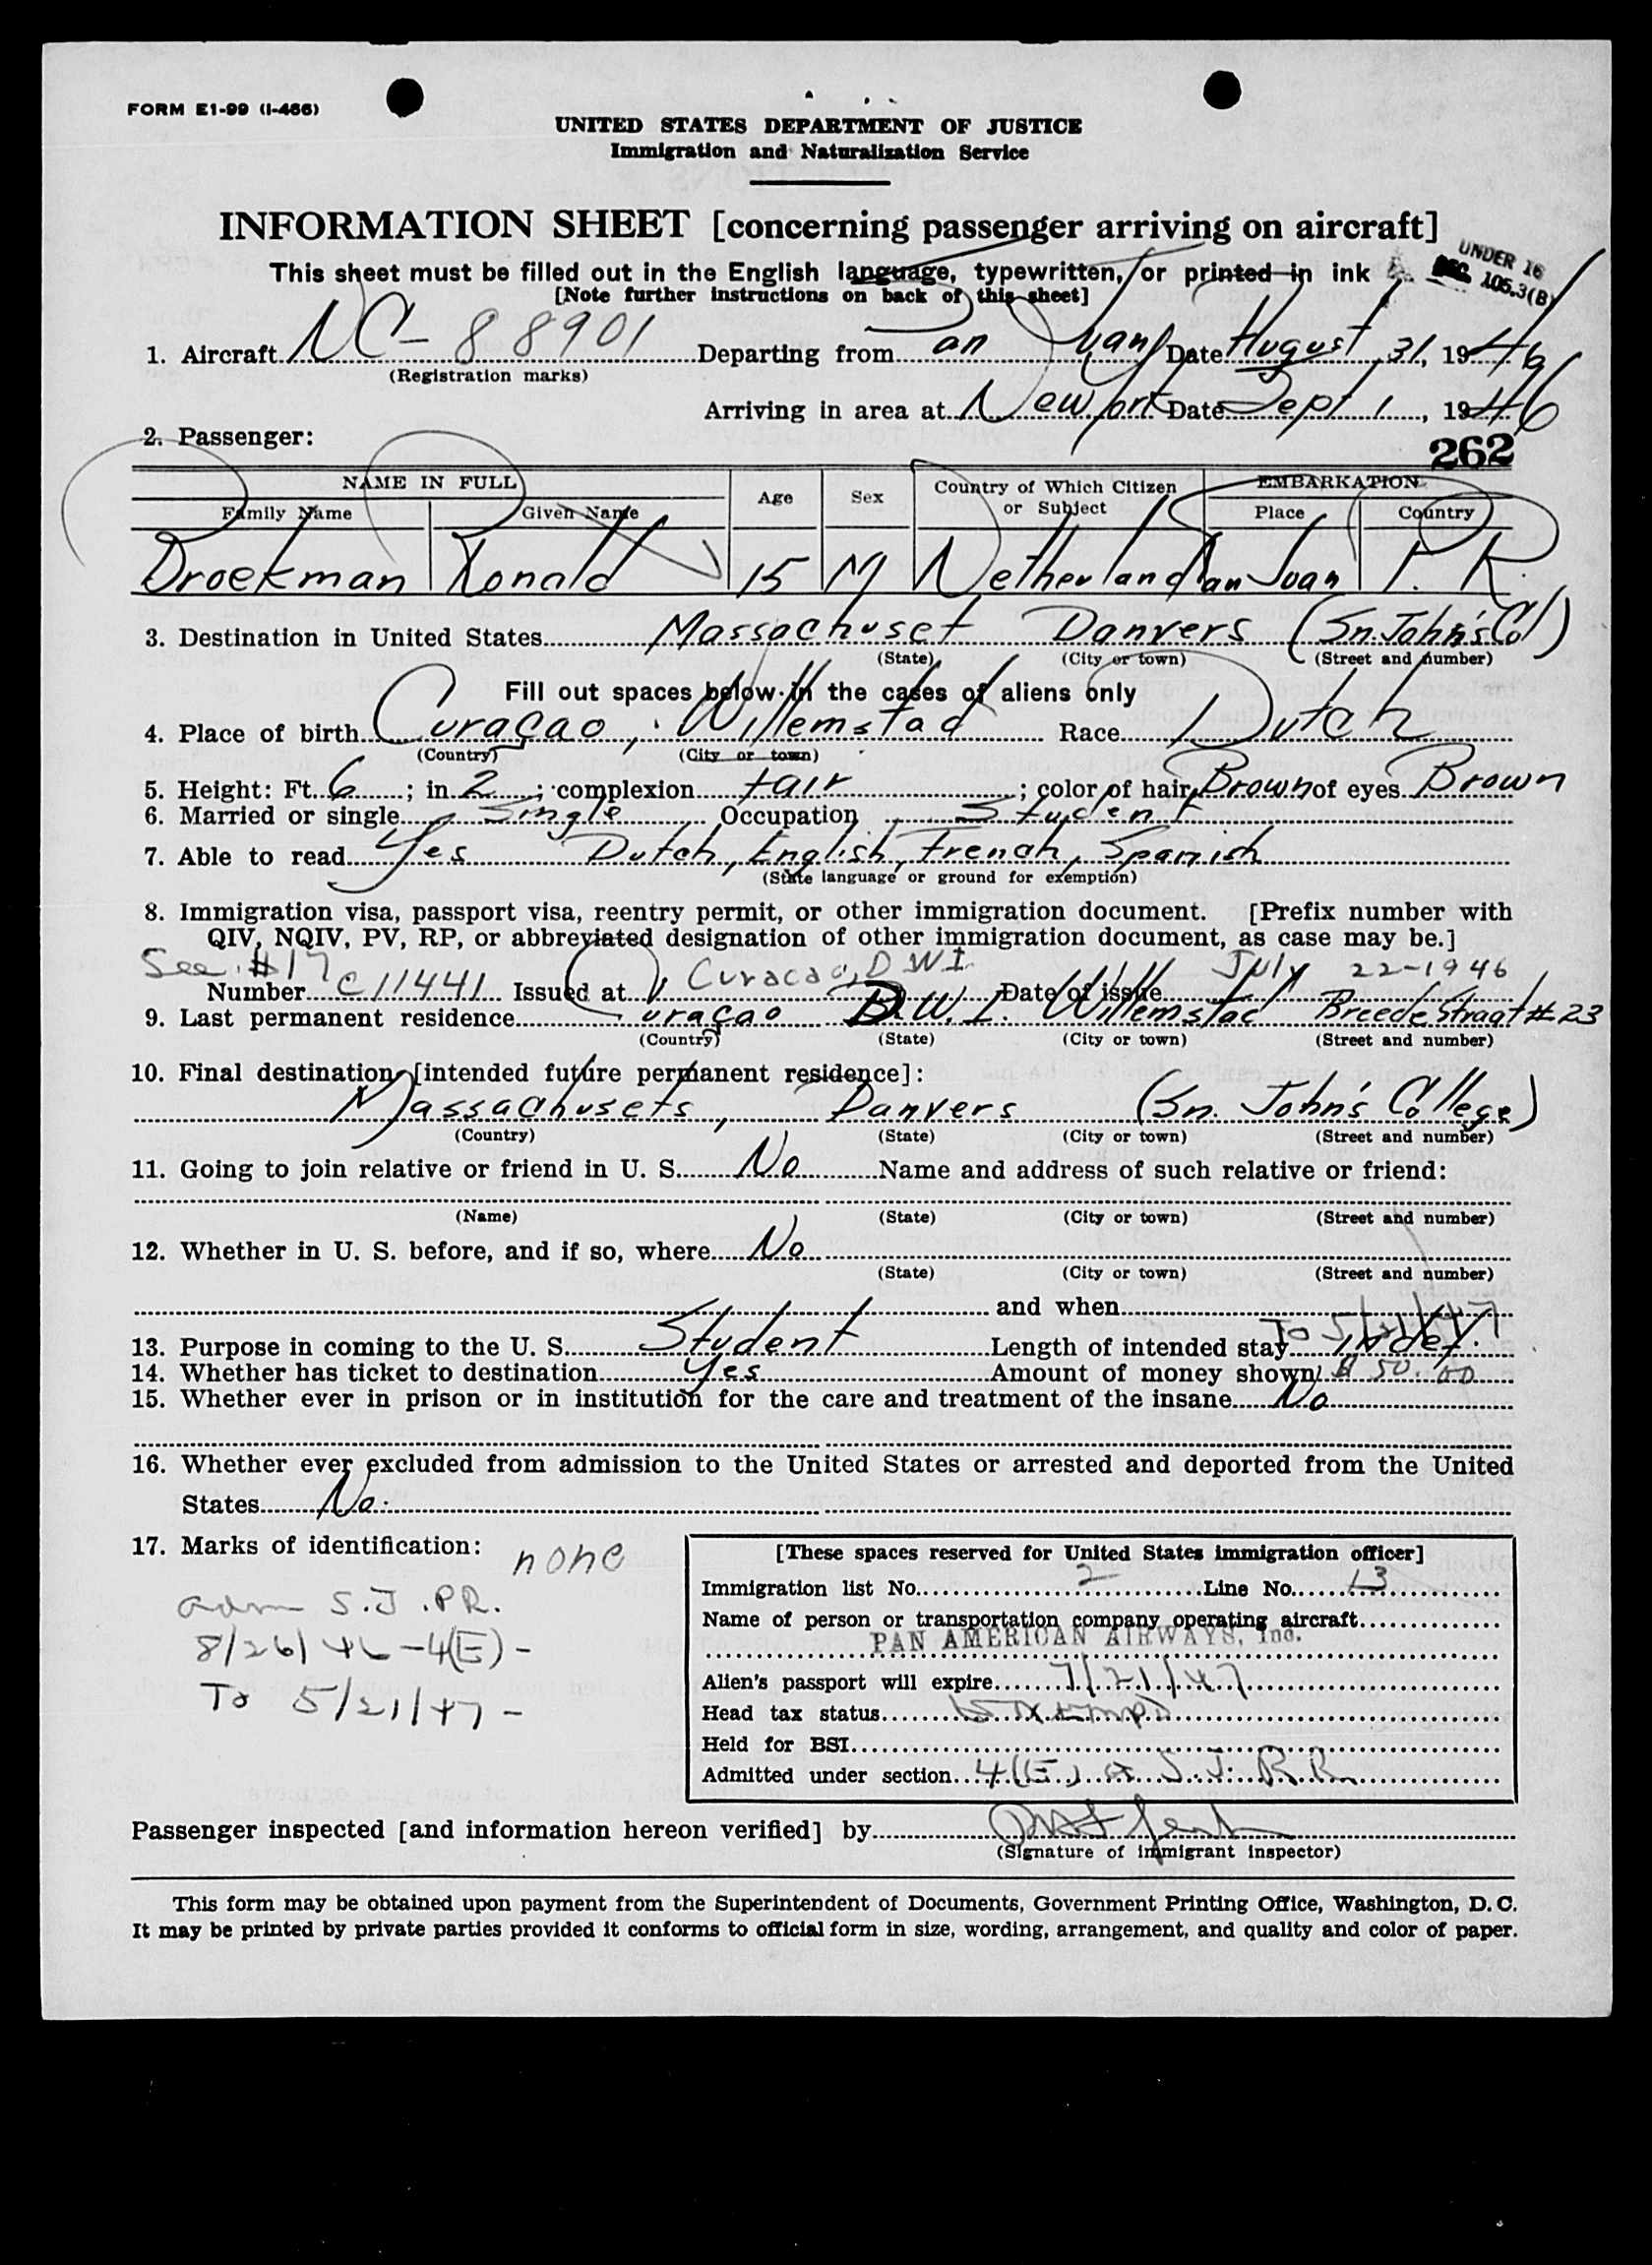 FORM E1-99 (I-466)
UNITED STATES DEPARTMENT OF JUSTICE
Immigration and Naturalization Service
INFORMATION SHEET [concerning passenger arriving on aircraft]
This sheet must be filled out in the English language, typewritten, or printed in ink
[Note further instructions on back of this sheet]
UNDER 16
SEC. 105.3(B)
1. Aircraft NC-88901 Departing from San Juan Date August 31, 1946
(Registration marks)
Arriving in area at New York Date Sept 1, 1946
2. Passenger:
262
NAME IN FULL Age Sex Country of Which Citizen or Subject EMBARKATION
Family Name Given Name Place Country
Broekman Ronald 15 M Netherland San Juan P.R.
3. Destination in United States Massachuset Danvers (Sn. John's Col)
(State) (City or town) (Street and number)
Fill out spaces below in the cases of aliens only
4. Place of birth Curaçao, Willemstad Race Dutch
(Country) (City or town)
5. Height: Ft. 6; in 2; complexion fair; color of hair Brown of eyes Brown
6. Married or single Single Occupation Student
7. Able to read Yes Dutch, English, French, Spanish
(State language or ground for exemption)
8. Immigration visa, passport visa, reentry permit, or other immigration document. [Prefix number with
QIV, NQIV, PV, RP, or abbreviated designation of other immigration document, as case may be.]
See #17
Number C11441 Issued at Curacao, DWI Date of issue July 22-1946
9. Last permanent residence Curaçao D.W.I. Willemstad Breede Straat #23
(Country) (State) (City or town) (Street and number)
10. Final destination [intended future permanent residence]:
Massachusets, Danvers (Sn. John's College)
(Country) (State) (City or town) (Street and number)
11. Going to join relative or friend in U. S. No Name and address of such relative or friend:
(Name) (State) (City or town) (Street and number)
12. Whether in U. S. before, and if so, where No
(State) (City or town) (Street and number)
and when
To 5/21/47
13. Purpose in coming to the U. S. Student Length of intended stay indef.
14. Whether has ticket to destination Yes Amount of money shown $50.00
15. Whether ever in prison or in institution for the care and treatment of the insane No
16. Whether ever excluded from admission to the United States or arrested and deported from the United
States No.
17. Marks of identification: none
adm S.J. P.R.
8/26/46-4(E)-
To 5/21/47-
[These spaces reserved for United States immigration officer]
Immigration list No. 2 Line No. 13
Name of person or transportation company operating aircraft
PAN AMERICAN AIRWAYS, Inc.
Alien's passport will expire 7/21/47
Head tax status
Held for BSI
Admitted under section 4(E) S.J. P.R.
Passenger inspected [and information hereon verified] by
(Signature of immigrant inspector)
This form may be obtained upon payment from the Superintendent of Documents, Government Printing Office, Washington, D. C.
It may be printed by private parties provided it conforms to official form in size, wording, arrangement, and quality and color of paper.